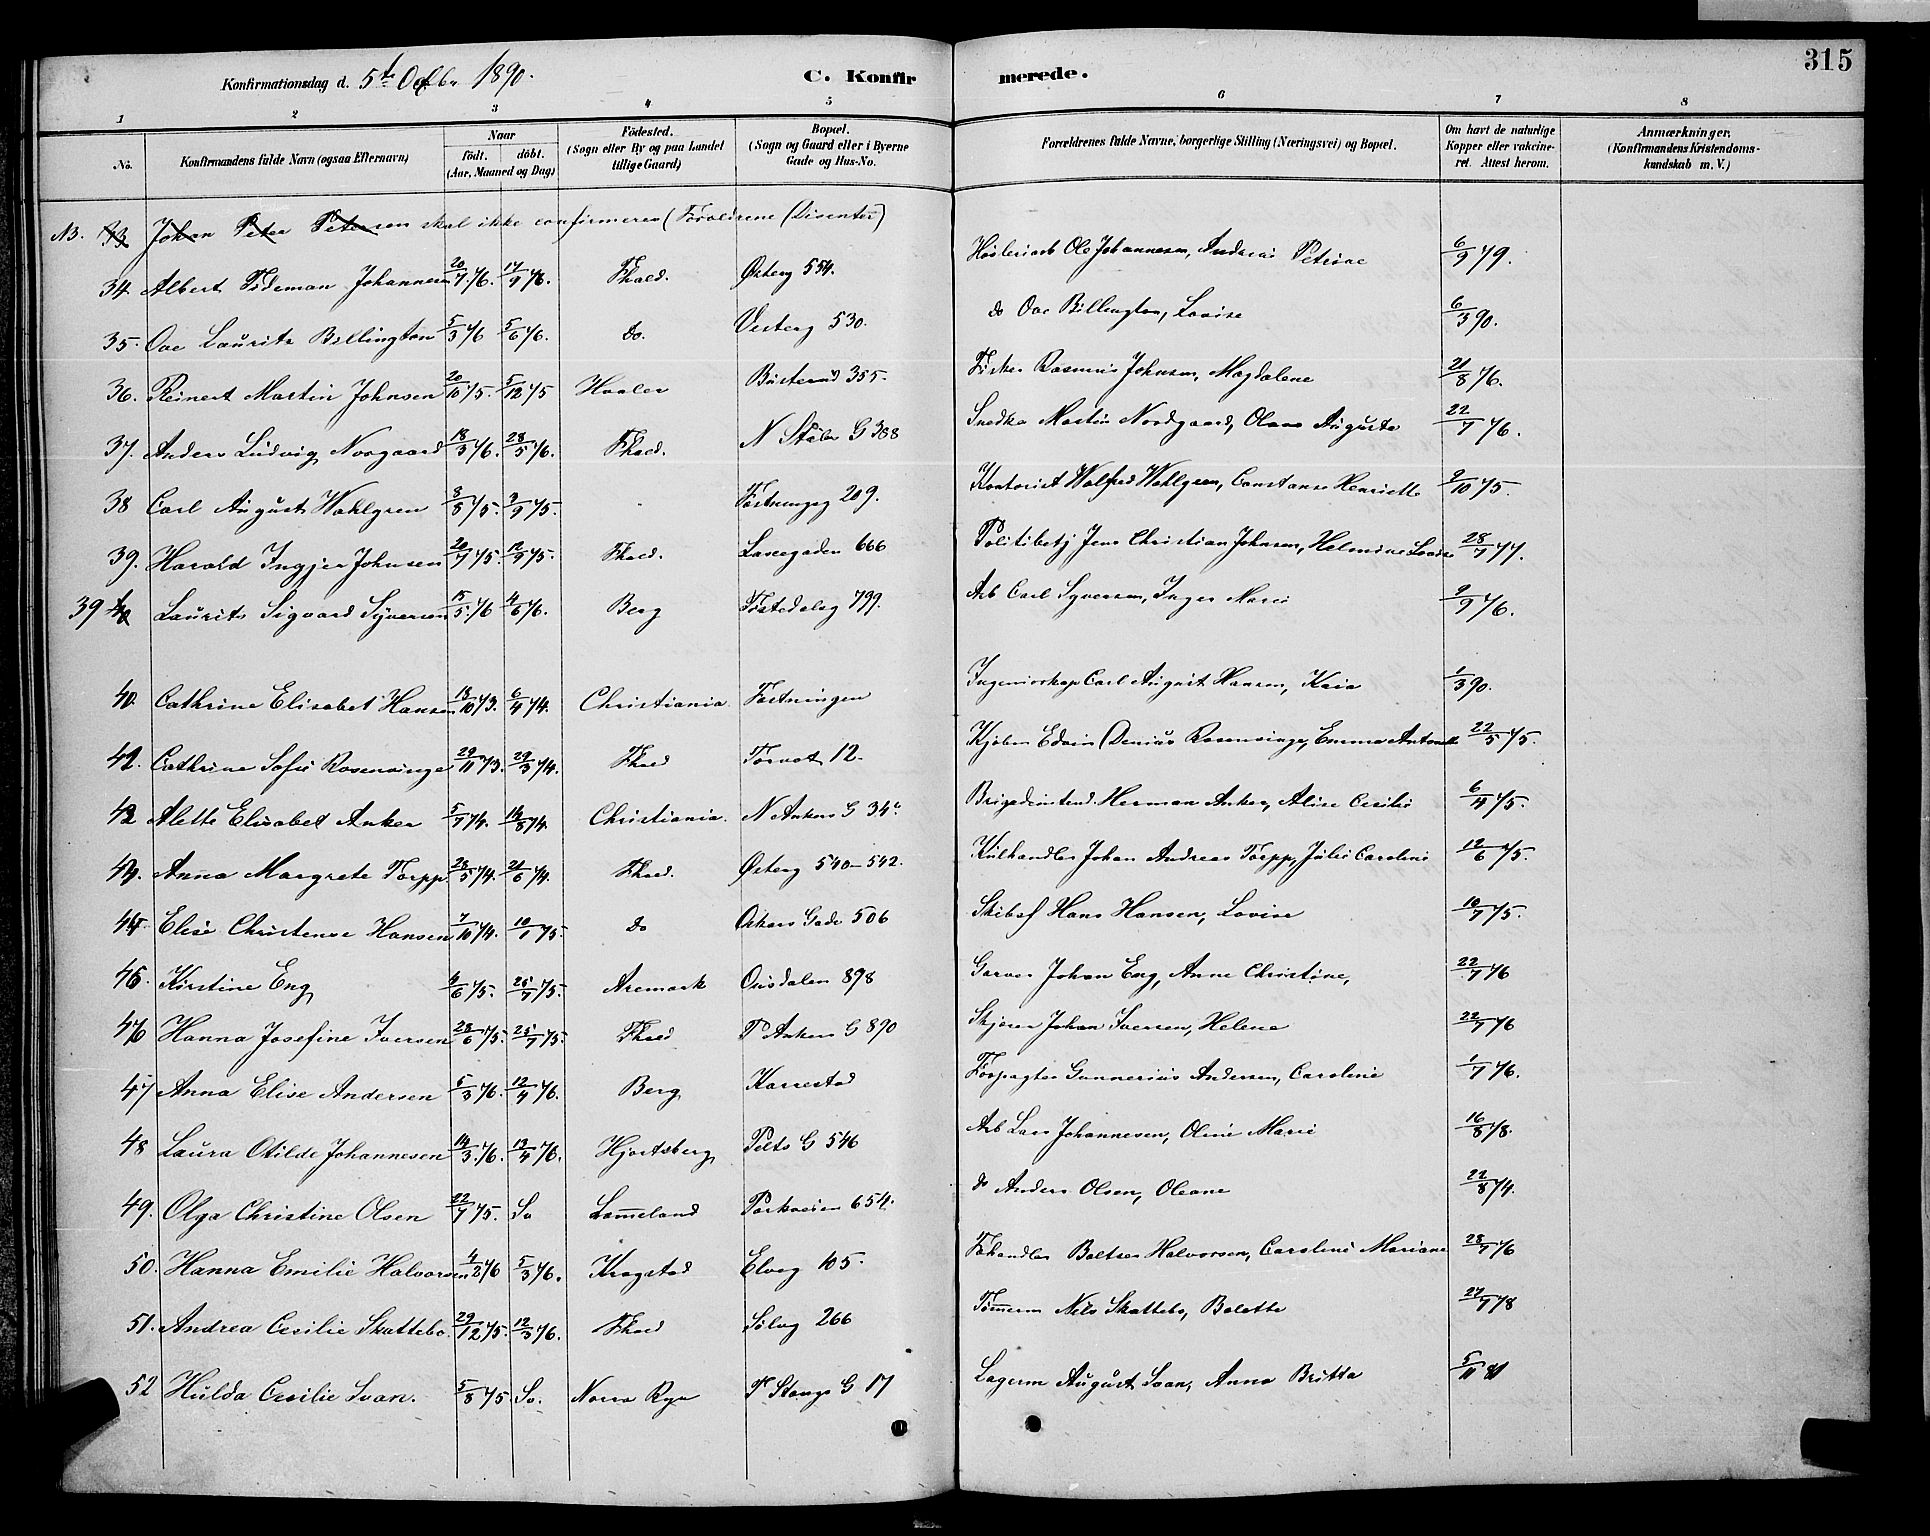 315
Konfirmationsdag d. 5te Octbr 1890. C. Konfirmerede.
1 2 3 4 5 6 7 8
No. Konfirmandens fulde Navn (ogsaa Efternavn) Naar født. døbt. (Aar, Maaned og Dag) Födested. (Sogn eller By og paa Landet tillige Gaard) Bopæl. (Sogn og Gaard eller i Byerne Gade og Hus-No. Forældrenes fulde Navne, borgerlige Stilling (Næringsvei) og Bopæl. Om havt de naturlige Kopper eller vakcineret. Attest herom. Anmærkninger. (Konfirmandens Kristendomskundskab m. V.)
NB. 33 Johan Peter Petersen skal ikke confirmeres (Forældrene Disenter)
34. Albert Tideman Johannesen 20/7 76. 17/9 76. Fhald. Østerg 554. Høvleriarb Ole Johannesen, Andrea Petrine 6/9 79.
35. Ove Laurits Billington 5/3 76 5/6 76. do. Vesterg 530. do Ove Billington, Lovise 6/3 90.
36. Reinert Martin Johnsen 20/10 75. 5/12 75 Hvaler Busterud 355. Fisker Rasmus Johnsen, Magdalene 21/8 76.
37. Anders Ludvig Norgaard 18/3 76. 28/5 76. Fhald. N Støbr G 388 Snedker Martin Nordgaard, Olava Augusta 22/7 76.
38 Carl August Wahlgren 8/5 75. 9/9 75. Fæstningsg 209. Kontorist Walfred Wahlgren, Constanse Henriette 9/10 75.
39. Harald Ingjer Johnsen 20/7 75. 12/9 75. Fhald. Lanegaden 666 Politibetj Jens Christian Johnsen, Helmine Lovise 28/7 77.
39 40 Laurits Sigvard Syversen 15/5 76 4/6 76. Berg Tistedalsg 799. Arb Carl Syversen, Inger Marie 9/9 76.
40. Cathrine Elisabet Hansen 13/10 73. 6/4 74. Christiania. Fæstningen Ingeniørkap Carl August Hansen, Kaia 1/3 90.
41. Cathrine Sofie Rosenvinge 29/11 73. 29/3 74. Fhald Torvet 12. Kjøbm Edvin Denius Rosenvinge, Emma Antonette 22/5 75.
42 Alette Elisabet Anker 5/7 74. 14/8 74. Christiania. N Ankers G 34b Brigadeintend. Herman Anker, Alise Cecilie 6/4 75.
44. Anna Margrete Torpp 28/5 74. 21/6 74. Fhald. Østerg 540-542. Kulhandler Johan Andreas Torpp, Julie Caroline 12/6 75.
45. Elise Christense Hansen 7/10 74. 10/1 75. do Oskars Gade 506 Skibsf Hans Hansen, Lovise 10/7 75.
45. Kirstine Eng 4/6 75. 25/7 75. Aremark Orisdalen 898 Garver Johan Eng, Anne Christine, 22/7 76
46 Hanna Josefine Iversen 28/6 75. 25/7 75. Fhald P Ankers G 890 Skjører Johan Iversen, Helene 22/7 76
47 Anna Elise Andersen 5/3 76. 12/4 76. Berg Karrestad Forpagter Gunnerius Andersen, Caroline 1/7 76.
48 Laura Otilde Johannesen 14/3 76. 13/4 76. Hjortsberg Pelts G 546 Arb Lars Johannesen, Oline Marie 16/8 78.
49. Olga Christine Olsen 22/7 75. Sv Lømeland Parkveien 654. do Anders Olsen, Oleane 22/8 74.
50. Hanna Emilie Halvorsen 4/2 76 5/3 76. Kragstad Elveg 105. Fhandler Baltser Halvorsen, Caroline Mariane 28/7 76
51. Andrea Cecilie Skattebo. 29/12 75. 12/3 76. Fhald Sølvg 266 Tømerm Nils Skattebo, Bolette 27/7 78
52 Hulda Cecilie Svan. 5/8 75. Sv. Norra Ryr P Stangs G 17 Lagerm August Svan, Anna Britta 5/11 81